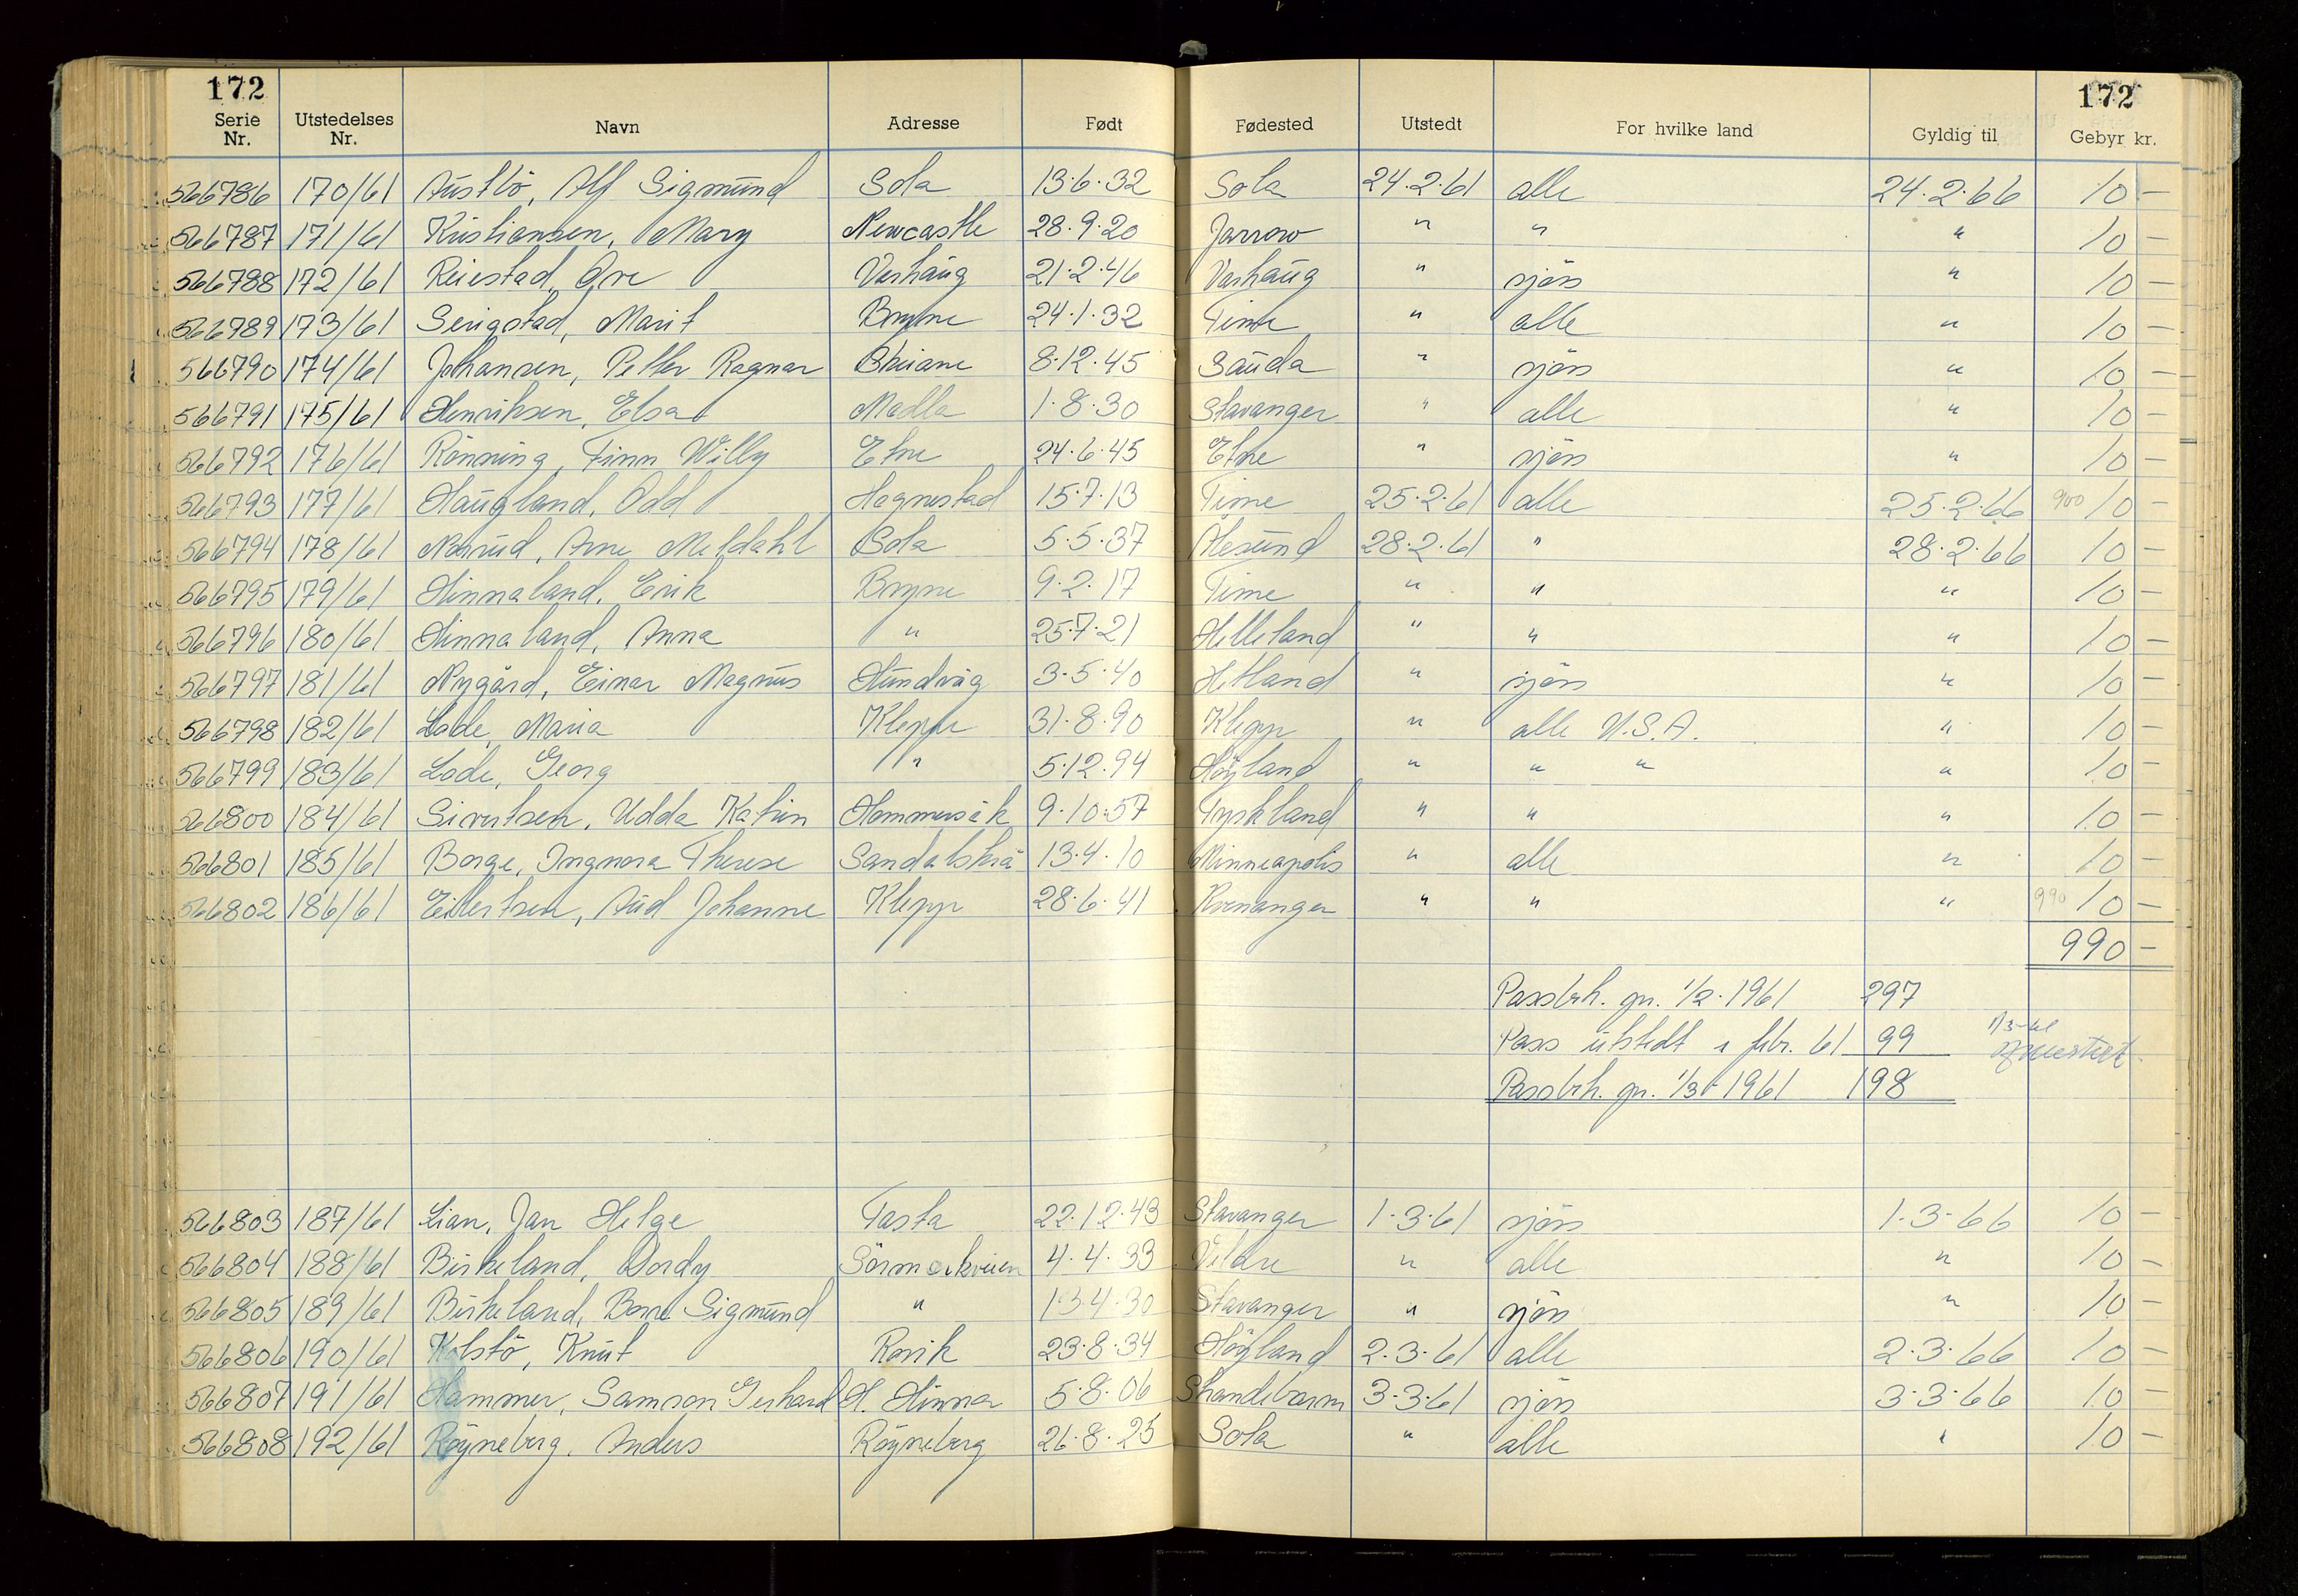 172 172
Serie Nr. Utstedelses Nr. Navn Adresse Født Fødested Utstedt For hvilke land Gyldig til Gebyr kr.
566786 170/61 Austbö, Alf Sigmund Sola 13.6.32 Sola 24.2.61 alle 24.2.66 10 –
566787 171/61 Kristiansen, Mary Newcastle 28.9.20 Jarrow " " " 10 –
566788 172/61 Reiestad, Ove Varhaug 21.2.46 Varhaug " sjøs " 10 –
566789 173/61 Serigstad, Marit Bryne 24.1.32 Time " alle " 10 –
566790 174/61 Johansen, Petter Ragnar 8.12.45 Sauda " sjøs " 10 –
566791 175/61 Henriksen, Elsa Madla 1.8.30 Stavanger " alle " 10 –
566792 176/61 Rönning, Finn Willy Etne 24.6.45 Etne " sjøs " 10 –
566793 177/61 Haugland, Odd Hognestad 15.7.13 Time 25.2.61 alle 25.2.66 900 10 –
566794 178/61 Arne Meldahl Sola 5.5.37 Ålesund 28.2.61 " 28.2.66 10 –
566795 179/61 Hinnaland, Erik Bryne 9.2.17 Time " " " 10 –
566796 180/61 Hinnaland, Anna " 25.7.21 Helleland " " " 10 –
566797 181/61 Nygård, Einar Magnus Hundvåg 3.5.40 Hetland " sjøs " 10 –
566798 182/61 Lode, Maria Klepp 31.8.90 Klepp " alle U.S.A. " 10 –
566799 183/61 Lode, Georg " 5.12.94 Høyland " " " " 10 –
566800 184/61 Sivertsen, Udda Katrin Hommersåk 9.10.57 Tyskland " " " 10 –
566801 185/61 Borge, Ingnora Therese 13.4.10 Minneapolis " alle " 10 –
566802 186/61 Eilertsen, Aud Johanne Klepp 28.6.41 " " " 990 10 –
990 –
Passbh. pr. 1/2-1961 297
Pass utstedt i febr. 61 99 1/3-61
Passbh. pr. 1/3-1961 198
566803 187/61 Lian, Jan Helge Tasta 22.12.43 Stavanger 1.3.61 sjøs 1.3.66 10 –
566804 188/61 Birkeland, Dordy Sörmarkveien 4.4.33 " alle " 10 –
566805 189/61 Birkeland, Sigmund " 13.4.30 Stavanger " sjøs " 10 –
566806 190/61 Kolstö, Knut 23.8.34 Höyland 2.3.61 alle 2.3.66 10 –
566807 191/61 Hammer, Samson Gerhard H. Hinna 5.8.06 Strandebarm 3.3.61 sjøs 3.3.66 10 –
566808 192/61 Röyneberg, Anders Röyneberg 26.8.25 Sola " alle " 10 –